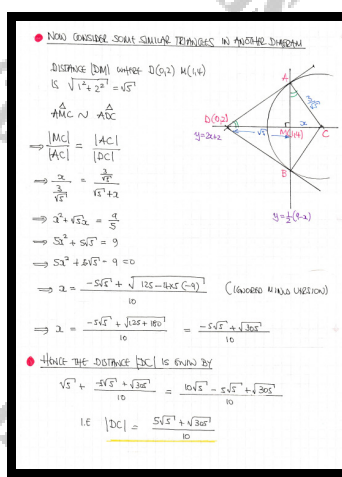 NOW CONSIDER SOME SIMILAR TRIANGLES IN ANOTHER DIAGRAM
DISTANCE |DM| WHERE D(0,2) M(1,4)
IS √(1²+2²) = √5
AMC ~ ADC
⟹ |MC|/|AC| = |AC|/|DC|
⟹ x/(3/√5) = (3/√5)/(√5+x)
⟹ x²+√5x = 9/5
⟹ 5x²+5√5x = 9
⟹ 5x²+5√5x-9=0
⟹ x = (-5√5 + √(125-4×5(-9)))/10 (IGNORED MINUS VERSION)
⟹ x = (-5√5 + √(125+180))/10 = (-5√5 + √305)/10
HENCE THE DISTANCE |DC| IS GIVEN BY
√5 + (-5√5 + √305)/10 = (10√5 - 5√5 + √305)/10
I.E |DC| = (5√5 + √305)/10
A
3/√5
D(0,2)
r
x
√5
M(1,4)
C
y=2x+2
B
y=½(9-x)